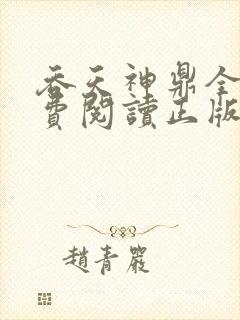 吞天神鼎全
費閱讀正版
趙青嚴